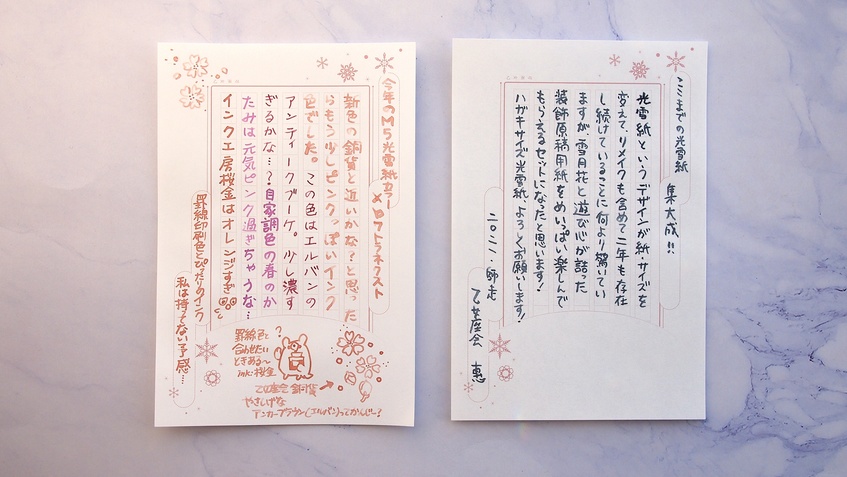 ここまでの光雪紙　集大成!!
光雪紙というデザインが紙、サイズを
変えて、リメイクも含めて二年も存在
し続けていることに何より驚いてい
ますが、雪月花と遊び心が詰った
装飾原稿用紙をめいっぱい楽しんで
もらえるセットになったと思います!
ハガキサイズ光雪紙、よろしくお願いします!
二〇二一、師走
乙女座会　恵
今年のM5光雪紙カラー
メロウトラネクスト
新色の銅貨と近いかな？と思った
らもう少しピンクっぽいインク
色でした。この色はエルバンの
アンティークブーケ。少し濃す
ぎるかな…？自家調色の春のか
たみは元気ピンク過ぎちゃうな…
インク工房桜金はオレンジすぎ
罫線印刷色とぴったりのインク
私は持ってない予感…
罫線色と
合わせたい
ときある〜
ink:桜金
?
乙女座会 銅貨
やさしげな
アンカーブラウン(エルバン)ってかんじ〜?